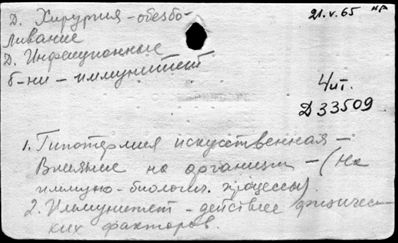 Д. Хирургия - обезбо-
ливание
Д. Инфекционные
б-ни - иммунитет
21.V.65 нр
Чит.
Д 33509
1. Гипотермия искусственная -
Влияние на организм - (на
иммуно-биологич. процессы)
2. Иммунитет - действие физичес-
ких факторов.